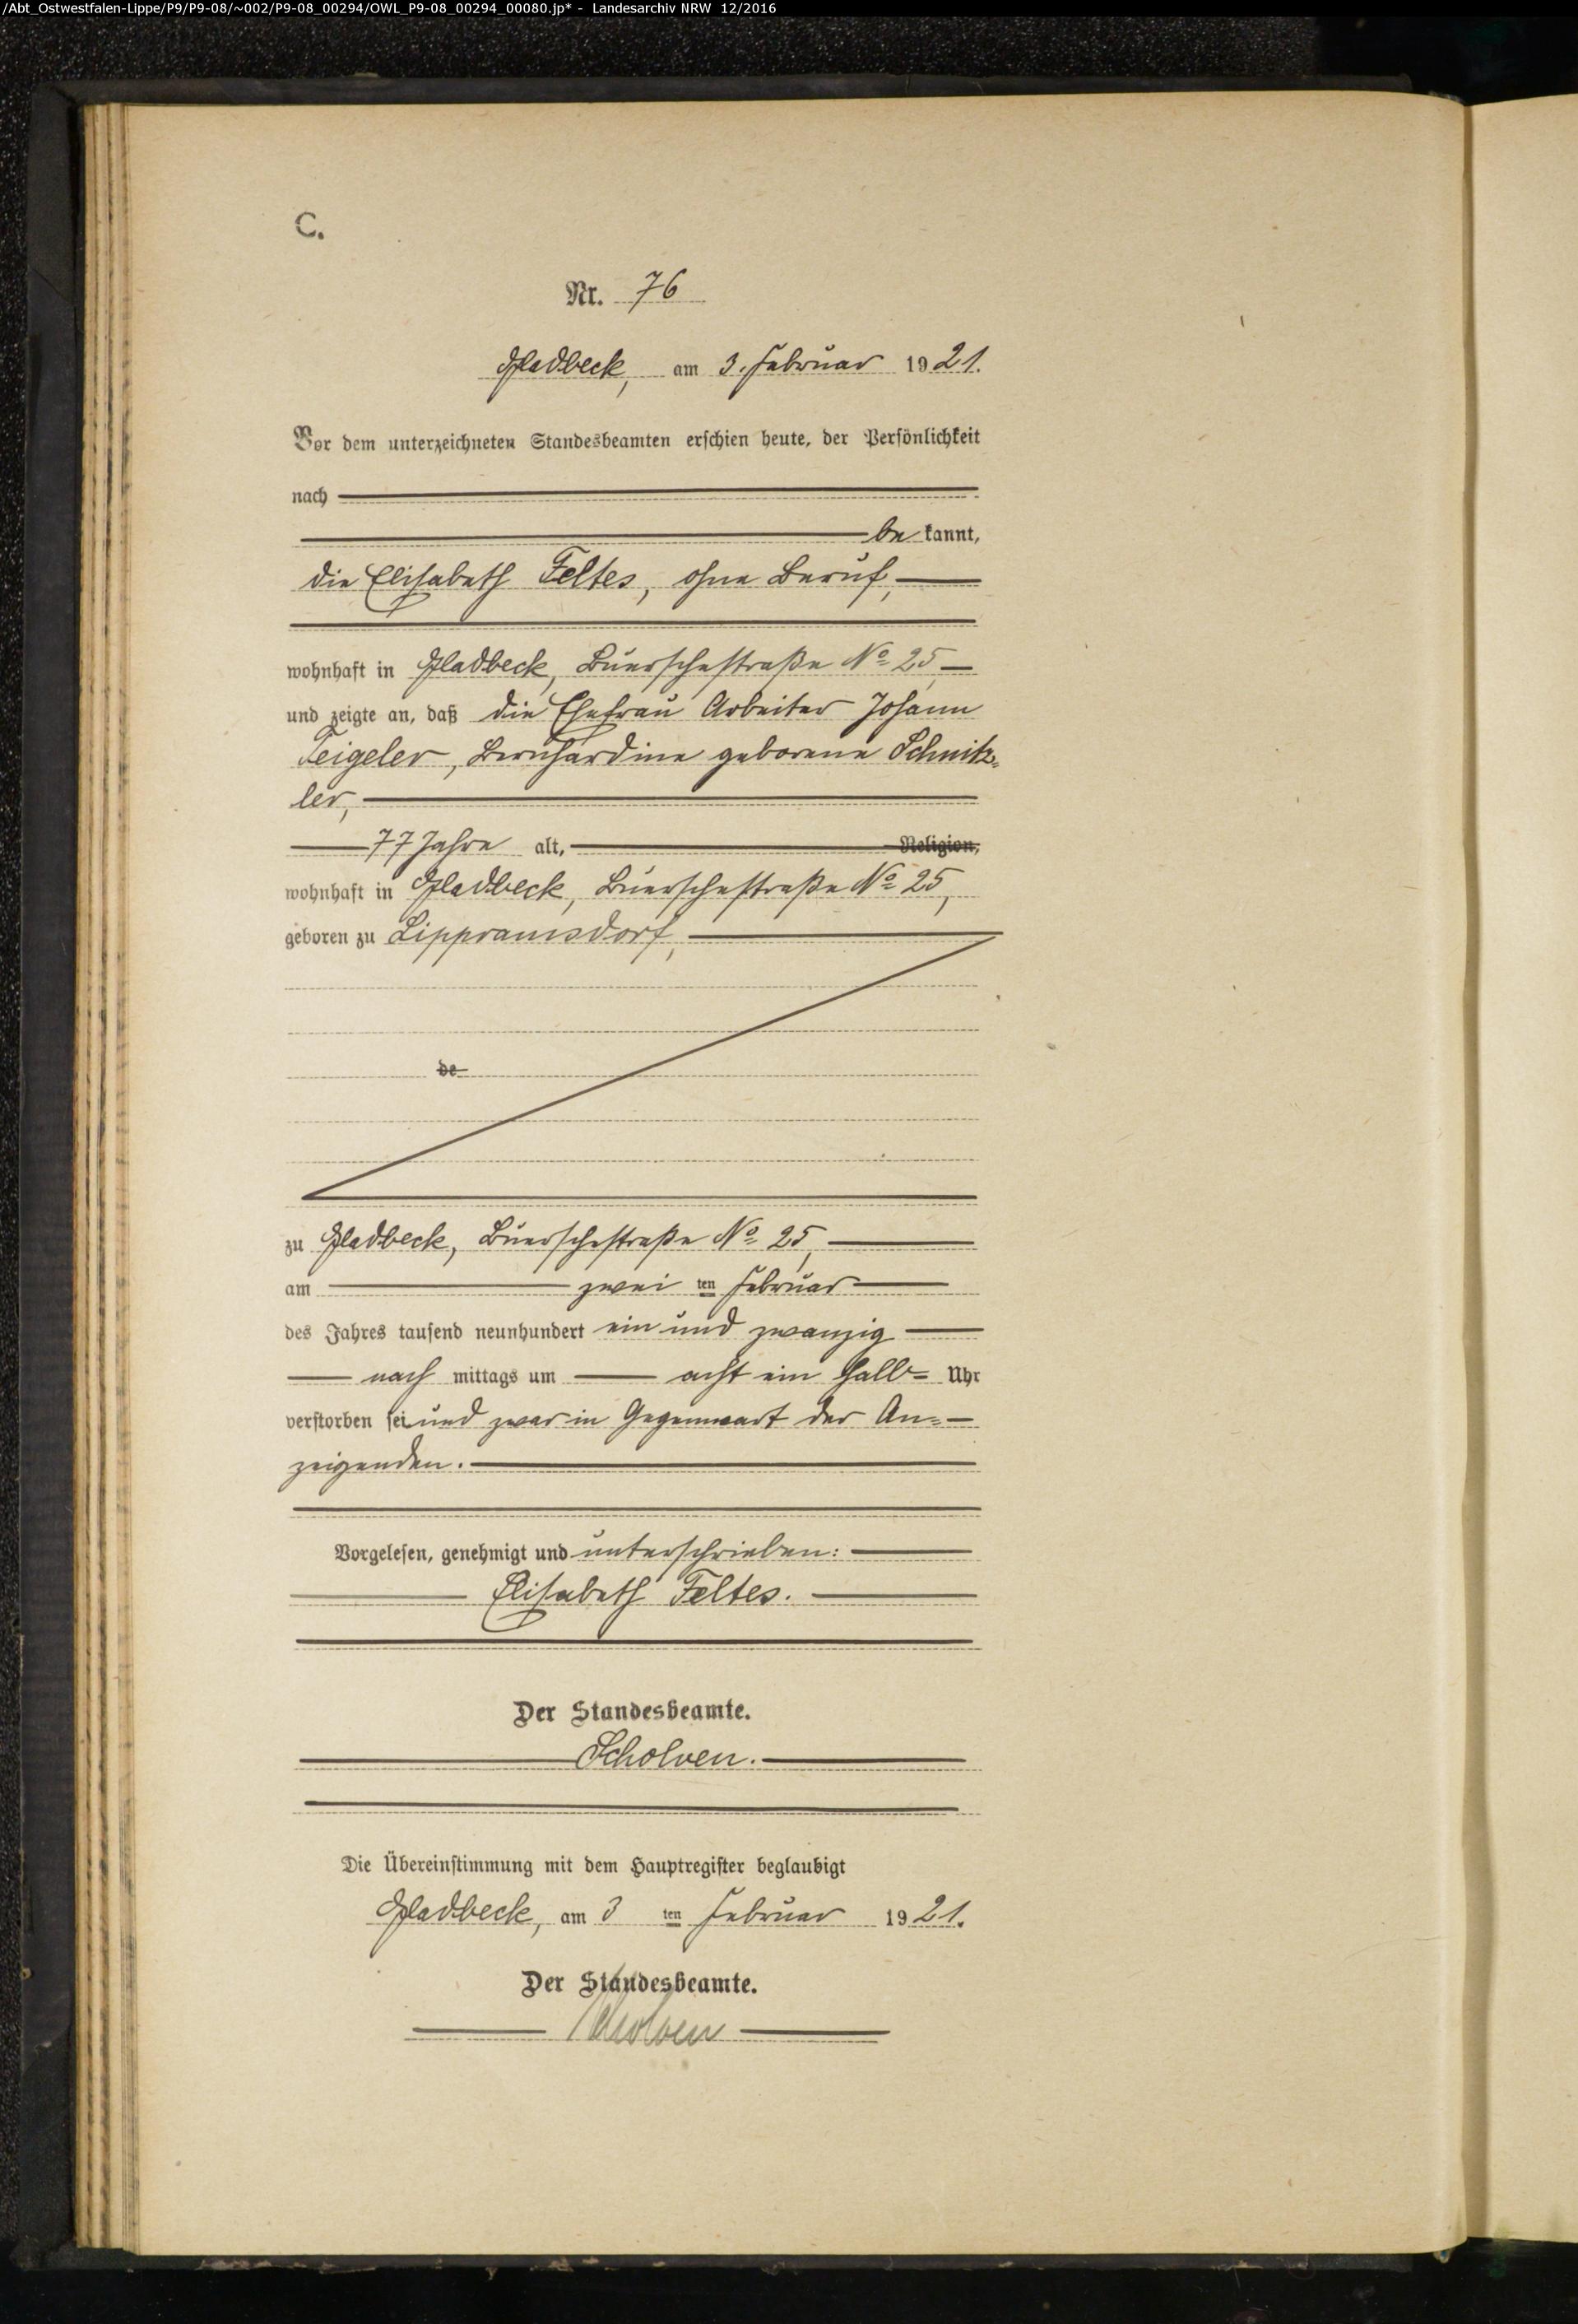 /Abt_Ostwestfalen-Lippe/P9/P9-08/~002/P9-08_00294/OWL_P9-08_00294_00080.jp* - Landesarchiv NRW 12/2016
C.
Nr. 76
Gladbeck, am 3. Februar 1921.
Vor dem unterzeichneten Standesbeamten erschien heute, der Persönlichkeit
nach
be kannt,
die Elisabeth Feltes, ohne Beruf,
wohnhaft in Gladbeck, Buerschestraße No 25,
und zeigte an, daß die Ehefrau Arbeiter Johann
Feigeler, Bernhardine geborene Schnitz-
ler,
77 Jahre alt, Religion,
wohnhaft in Gladbeck, Buerschestraße No 25,
geboren zu Lippramsdorf,
de
zu Gladbeck, Buerschestraße No 25,
am zwei ten Februar
des Jahres tausend neunhundert ein und zwanzig
nach mittags um acht ein halb= Uhr
verstorben sei und zwar in Gegenwart der An=
zeigenden.
Vorgelesen, genehmigt und unterschrieben:
Elisabeth Feltes.
Der Standesbeamte.
Scholven.
Die Übereinstimmung mit dem Hauptregister beglaubigt
Gladbeck, am 3 ten Februar 1921.
Der Standesbeamte.
Scholven